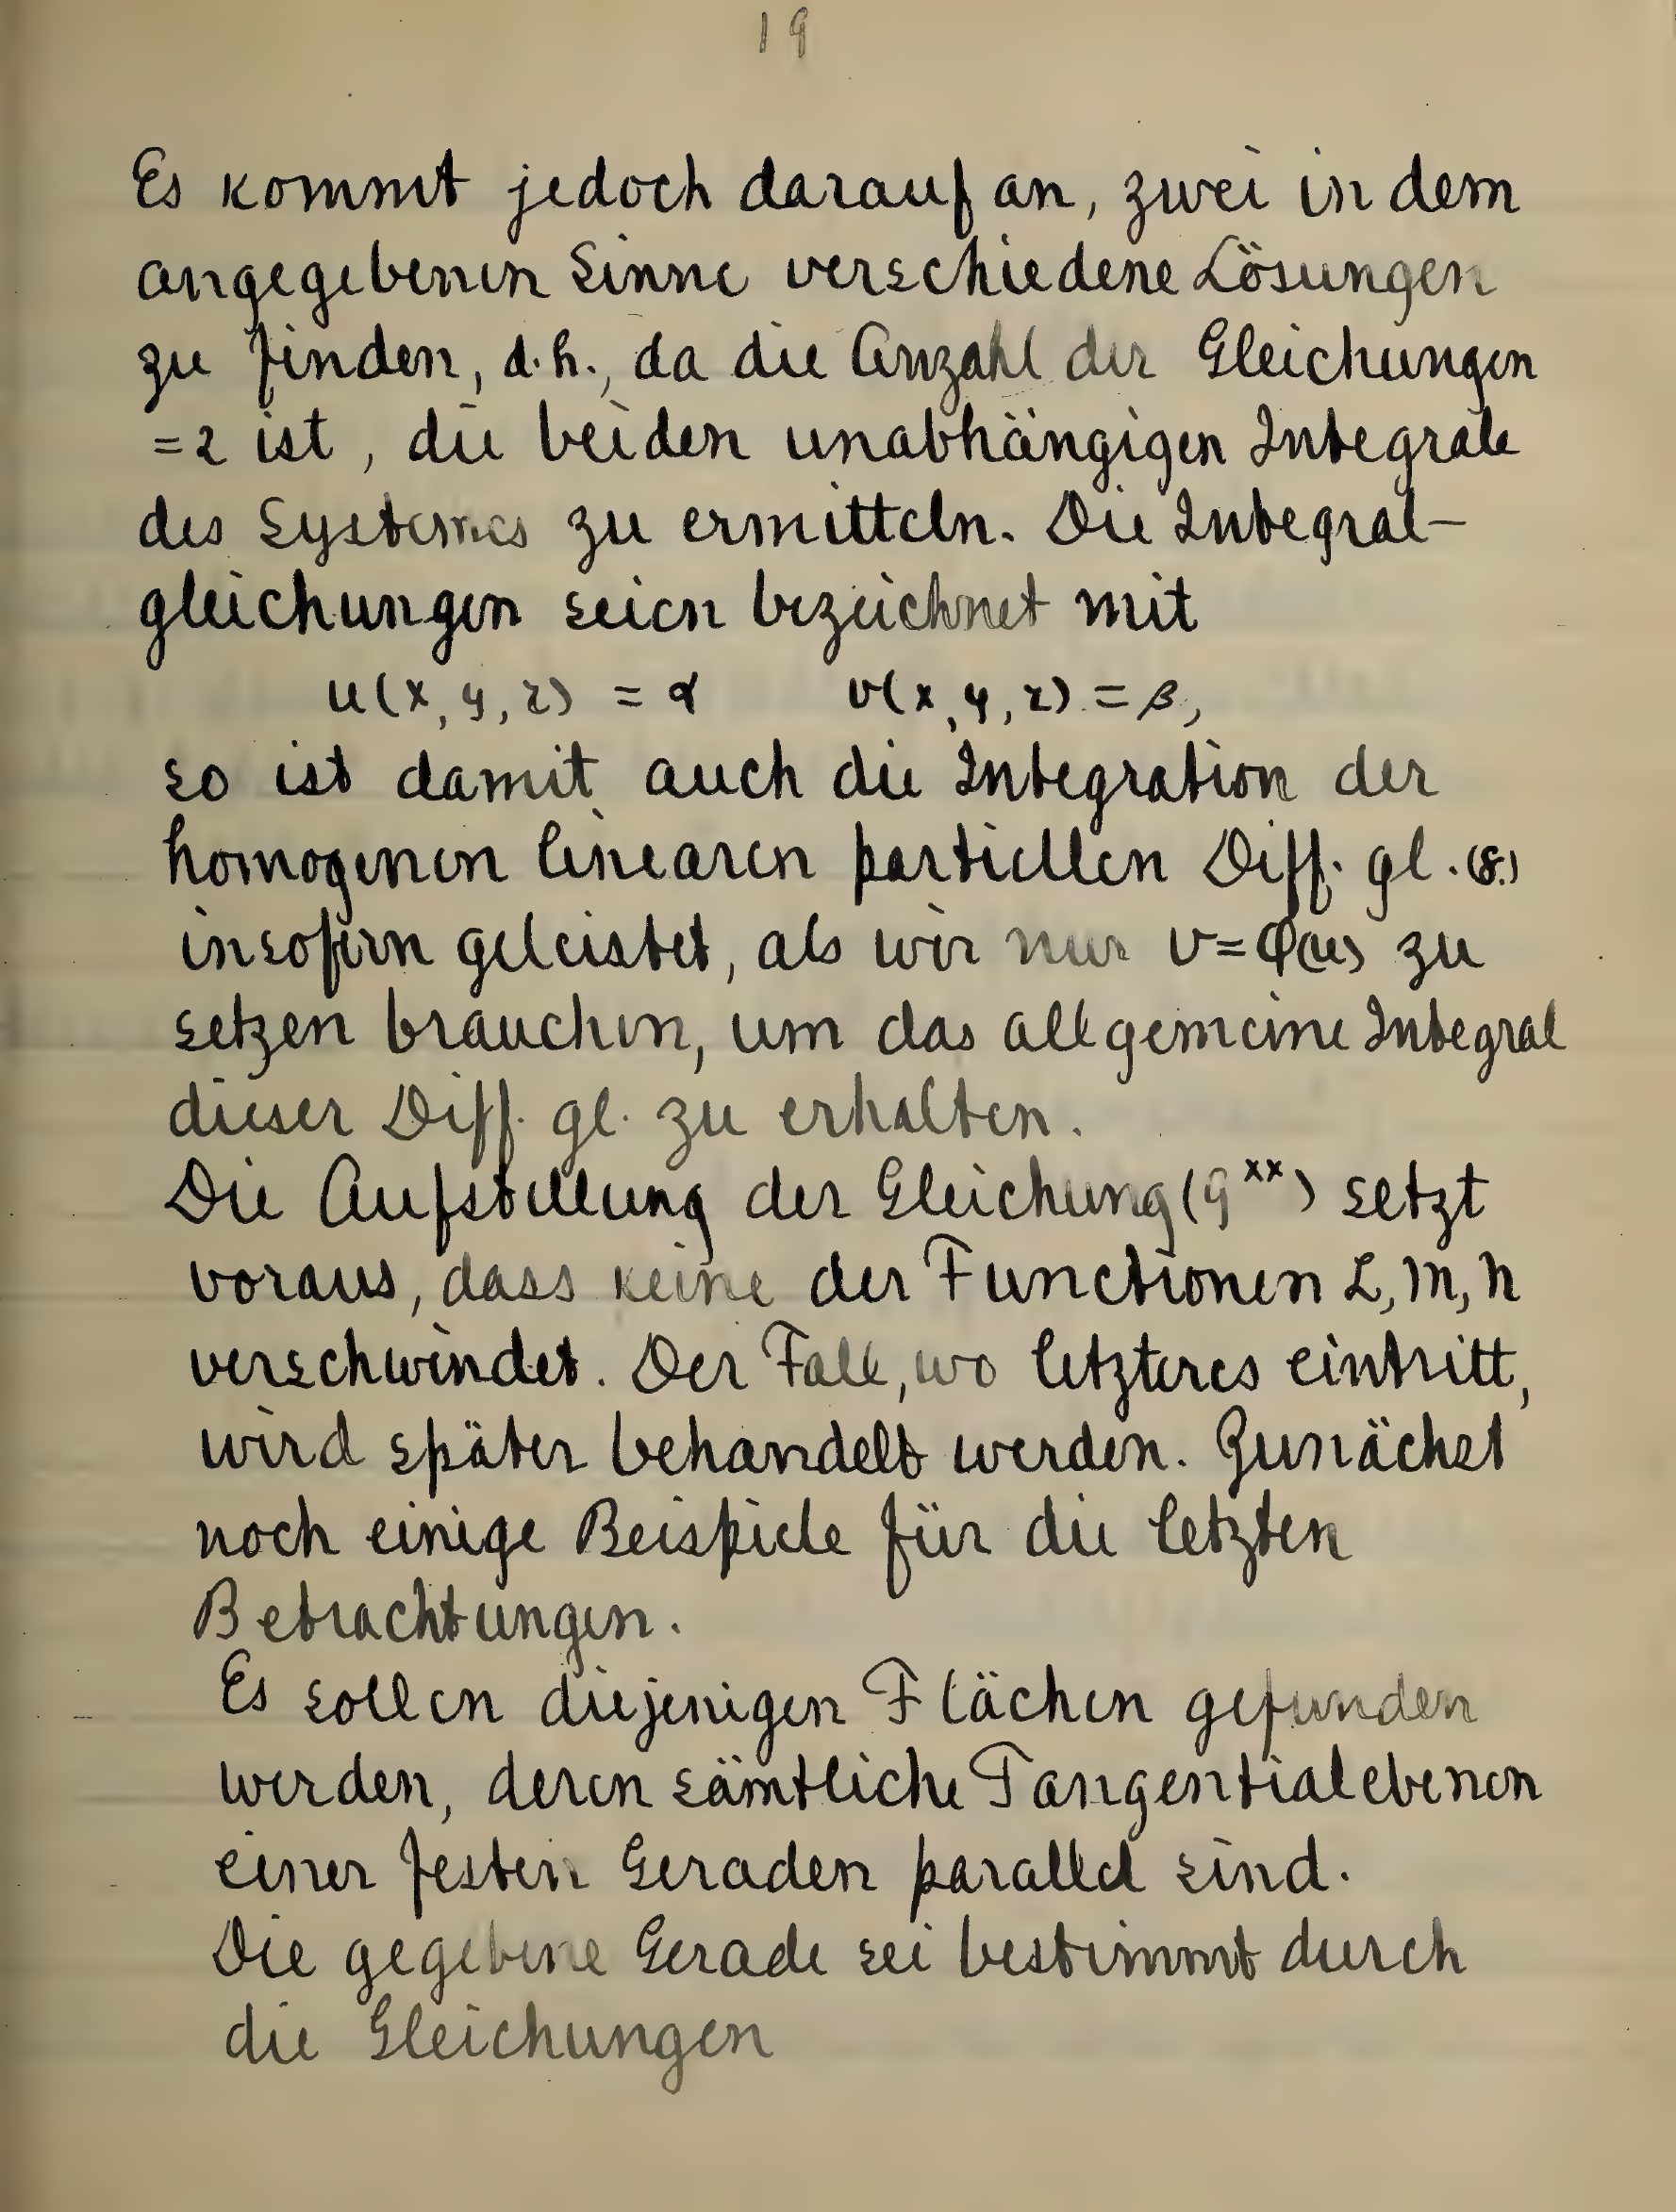 19
Es kommt jedoch darauf an, zwei in dem
angegebenen Sinne verschiedene Lösungen
zu finden, d.h., da die Anzahl der Gleichungen
=2 ist, die beiden unabhängigen Integrale
des Systemes zu ermitteln. Die Integral-
gleichungen seien bezeichnet mit
u(x,y,z) = α v(x,y,z) = β,
so ist damit auch die Integration der
homogenen linearen partiellen Diff. gl. (8.)
insofern geleistet, als wir nur v=φ(u) zu
setzen brauchen, um das allgemeine Integral
dieser Diff. gl. zu erhalten.
Die Aufstellung der Gleichung (9ˣˣ) setzt
voraus, dass keine der Functionen L, M, N
verschwindet. Der Fall, wo letzteres eintritt,
wird später behandelt werden. Zunächst
noch einige Beispiele für die letzten
Betrachtungen.
Es sollen diejenigen Flächen gefunden
werden, deren sämtliche Tangentialebenen
einer festen Geraden parallel sind.
Die gegebene Gerade sei bestimmt durch
die Gleichungen